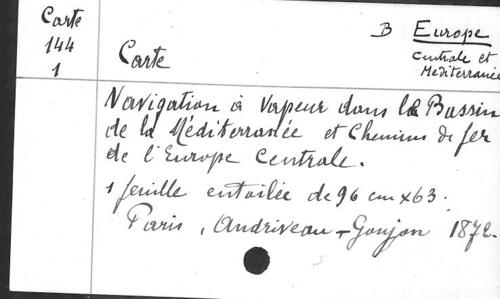 Carte
144
1
B Europe
Centrale et
Méditerranée
Carte
Navigation à Vapeur dans le Bassin
de la Méditerranée et Chemins de fer
de l'Europe Centrale.
1 feuille entoilée de 96 cm x 63.
Paris, Andriveau-Goujon 1872.